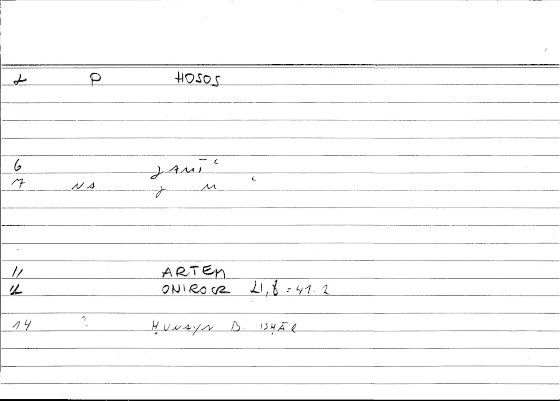 2 P HOSOS
6 ǧAMĪʿ
7 NA ǧ M ʿ
11 ARTEM
12 ONIROCR II,8 = 41.2
14 ? ḤUNAYN B. ISḤĀQ